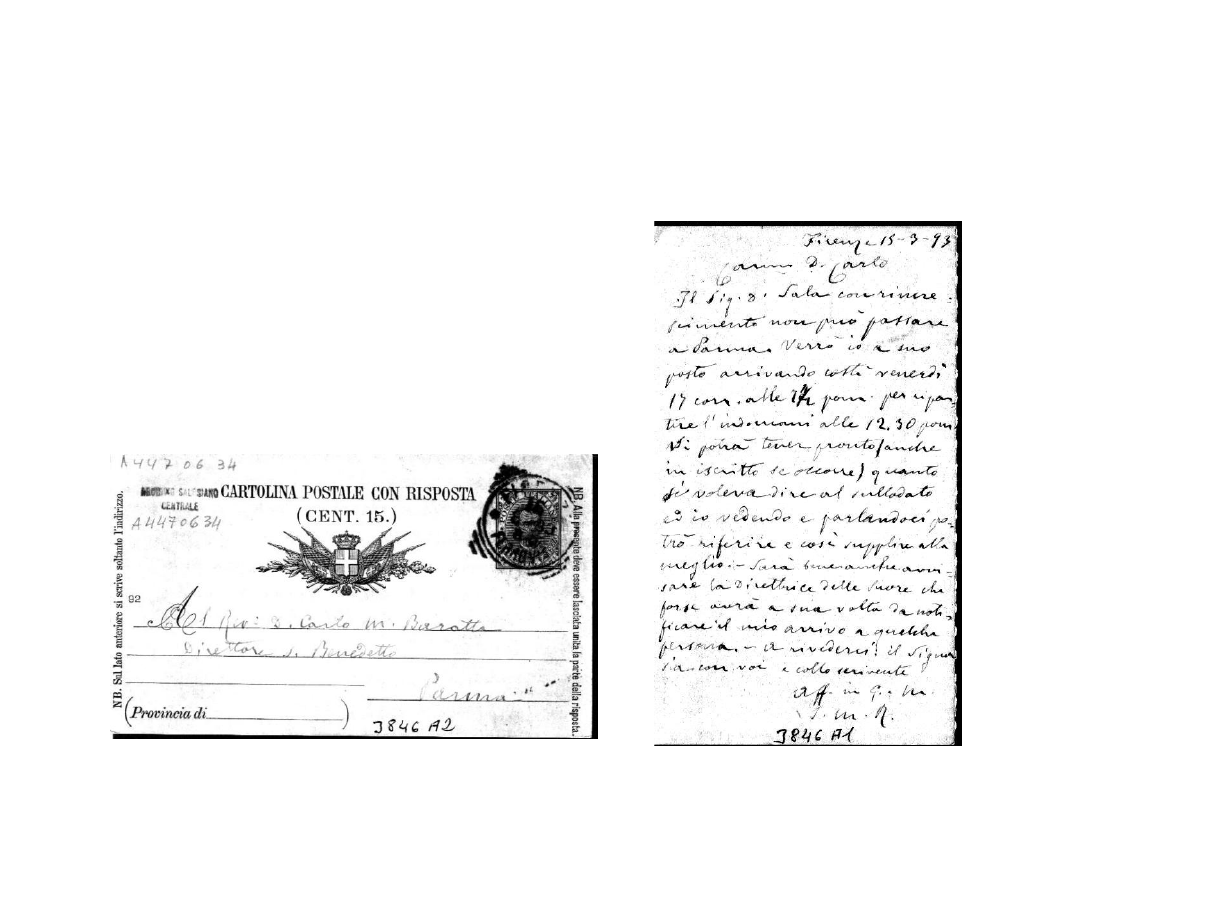 A4470634
ARCHIVIO SALESIANO
CENTRALE
A4470634
CARTOLINA POSTALE CON RISPOSTA
(CENT. 15.)
NB. Sul lato anteriore si scrive soltanto l'indirizzo.
NB. Alla presente deve essere lasciata unita la parte della risposta.
92
Al Rev: D. Carlo M. Baratta
Direttore S. Benedetto
Parma
(Provincia di )
3846 A2
Firenze 15-3-93
Carmo D. Carlo
Il Sig. D. Sala con rincre-
scimento non può passare
a Parma. Verrò io a suo
posto arrivando costì venerdì
17 corr. alle 7½ pom. per ripar-
tire l'indomani alle 12.30 pom
Si potrà tener pronto (anche
in iscritto se occorre) quanto
si voleva dire al sullodato
ed io vedendo e parlandoci po-
trò riferire e così supplire alla
meglio. - Sarà bene anche avvi-
sare la Direttrice delle Suore che
forse avrà a sua volta da noti-
ficare il mio arrivo a qualche
persona. - A rivederci: il Signor
sia con voi e collo scrivente
Aff. in G. e M.
S. M. R.
3846 A1